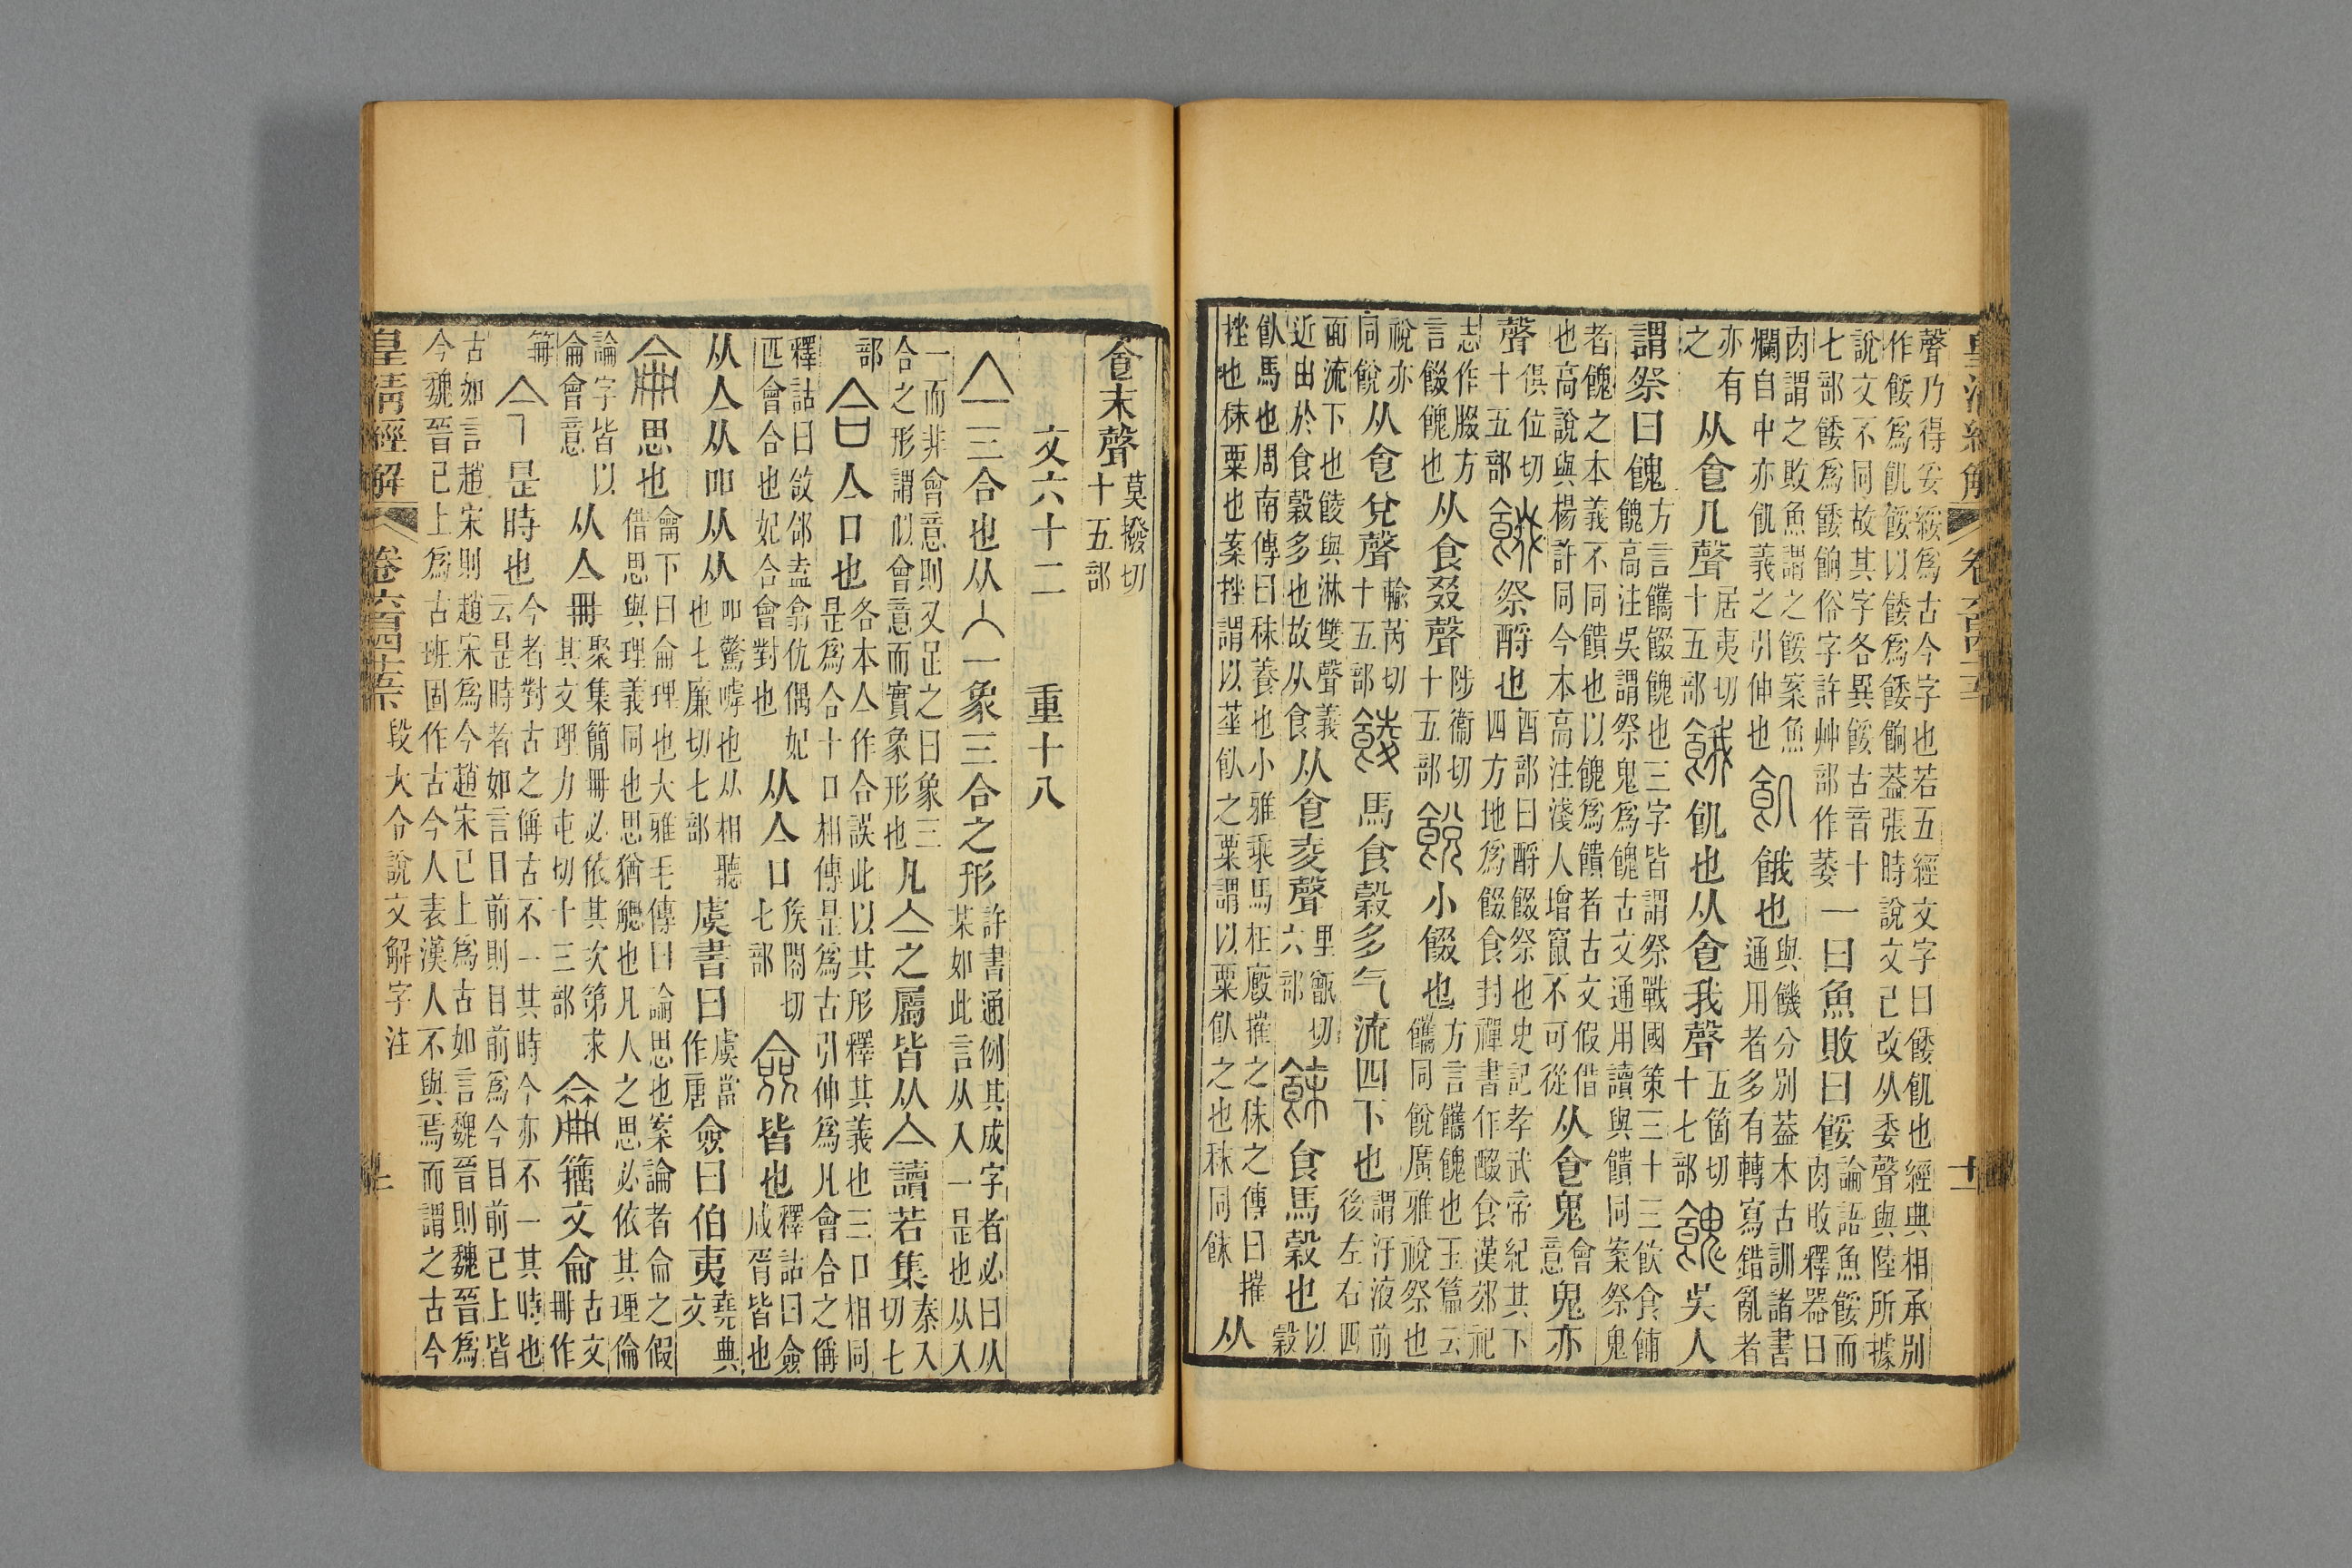 皇清經解 卷六百四十五 十一
聲乃得妥綏爲古今字也若五經文字曰餧飢也經典相承別
作餧爲飢餒以餧爲餧餉葢張時說文已改从委聲與陸所據
說文不同故其字各異餒古音十
七部餧爲餧餉俗字許艸部作萎
一曰魚敗曰餒
論語魚餒而
肉敗釋器曰
肉謂之敗魚謂之餒案魚
爛自中亦飢義之引伸也
飢餓也
與饑分別葢本古訓諸書
通用者多有轉寫錯亂者
亦有
之
从食几聲
居夷切
十五部
餓飢也从食我聲
五箇切
十七部
餽吳人
謂祭曰餽
方言䭨餟餽也三字皆謂祭戰國策三十三飲食餔
餽高注吳謂祭鬼爲餽古文通用讀與饋同案祭鬼
者餽之本義不同饋也以餽爲饋者古文假借
也高說與楊許同今本高注淺人增竄不可從
从食鬼
會
意
鬼亦
聲
俱位切
十五部
餟祭酹也
酉部曰酹餟祭也史記孝武帝紀其下
四方地爲餟食封禪書作醊食漢郊祀
志作腏方
言餟餽也
从食叕聲
陟衞切
十五部
䬽小餟也
方言䭨餽也玉篇云
䭨同䬽廣雅祱祭也
祱亦
同䬽
从食兌聲
輸芮切
十五部
䔖馬食穀多气流四下也
謂汗液前
後左右四
面流下也餕與淋雙聲義
近出於食穀多也故从食
从食夌聲
里甑切
六部
䬴食馬穀也
以
穀
飤馬也周南傳曰秣養也小雅乘馬在廄摧之秣之傳曰摧
挫也秣粟也案挫謂以莝飤之粟謂以粟飤之也秣同䬴
从
食末聲
莫撥切
十五部
文六十二 重十八
亼三合也从入一象三合之形
許書通例其成字者必曰从
某如此言从入一是也从入
一而非會意則又足之曰象三
合之形謂似會意而實象形也
凡亼之屬皆从亼讀若集
秦入
切七
部
合亼口也
各本亼作合誤此以其形釋其義也三口相同
是爲合十口相傳是爲古引伸爲凡會合之偁
釋詁曰敆郃盍翕仇偶妃
匹會合也妃合會對也
从亼口
矦閤切
七部
僉皆也
釋詁曰僉
咸胥皆也
从亼从吅从从
吅驚嘑也从相聽
也七廉切七部
虞書曰
虞當
作唐
僉曰伯夷
堯典
文
侖思也
龠下曰侖理也大雅毛傳曰論思也案論者侖之假
借思與理義同也思猶䚡也凡人之思必依其理倫
論字皆以
侖會意
从亼冊
聚集簡冊必依其次第求
其文理力屯切十三部
籀文侖
古文
冊作
𠕋
今是時也
今者對古之偁古不一其時今亦不一其時也
云是時者如言目前則目前爲今目前已上皆
古如言趙宋則趙宋爲今趙宋已上爲古如言魏晉則魏晉爲
今魏晉已上爲古班固作古今人表漢人不與焉而謂之古今
皇清經解 卷六百四十五下 段大令說文解字注 十一